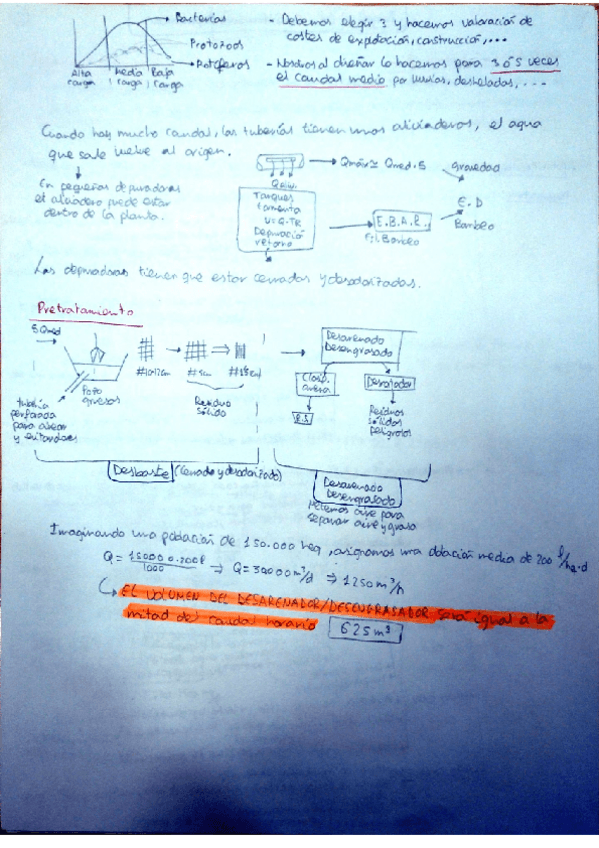 Bacterias
Protozoos
Rotíferos
Alta carga
Media carga
Baja carga
- Debemos elegir 3 y hacemos valoración de
costes de explotación, construcción,...
- Nosotros al diseñar lo hacemos para 3 ó 5 veces
el caudal medio por lluvias, deshielos,...
Cuando hay mucho caudal, las tuberías tienen unos aliviaderos, el agua
que sale vuelve al origen.
En pequeñas depuradoras
el aliviadero puede estar
dentro de la planta.
Qmáx ≃ Qmed·5
Qaliv.
Tanques
tormenta
V=Q·TR
Depuración
retorno
E.B.A.R.
Est. Bombeo
gravedad
E.D
Bombeo
Las depuradoras tienen que estar cerradas y desodorizadas.
Pretratamiento
5 Qmed
Pozo
gruesos
tubería
perforada
para airear
y evitar
# 10-12cm
# 5cm
Residuo
sólido
Desbaste (Cerrado y desodorizado)
Desarenado
Desengrasado
Clasif.
arena
R.S
Desnatador
Residuos
sólidos
peligrosos
Desarenado
Desengrasado
Metemos aire para
separar aire y grasa
Imaginando una población de 150.000 heq, asignamos una dotación media de 200 l/hq·d
Q = 150000·200l / 1000 ⇒ Q = 30000 m³/d ⇒ 1250 m³/h
EL VOLUMEN DEL DESARENADOR/DESENGRASADOR será igual a la
mitad del caudal horario 625 m³